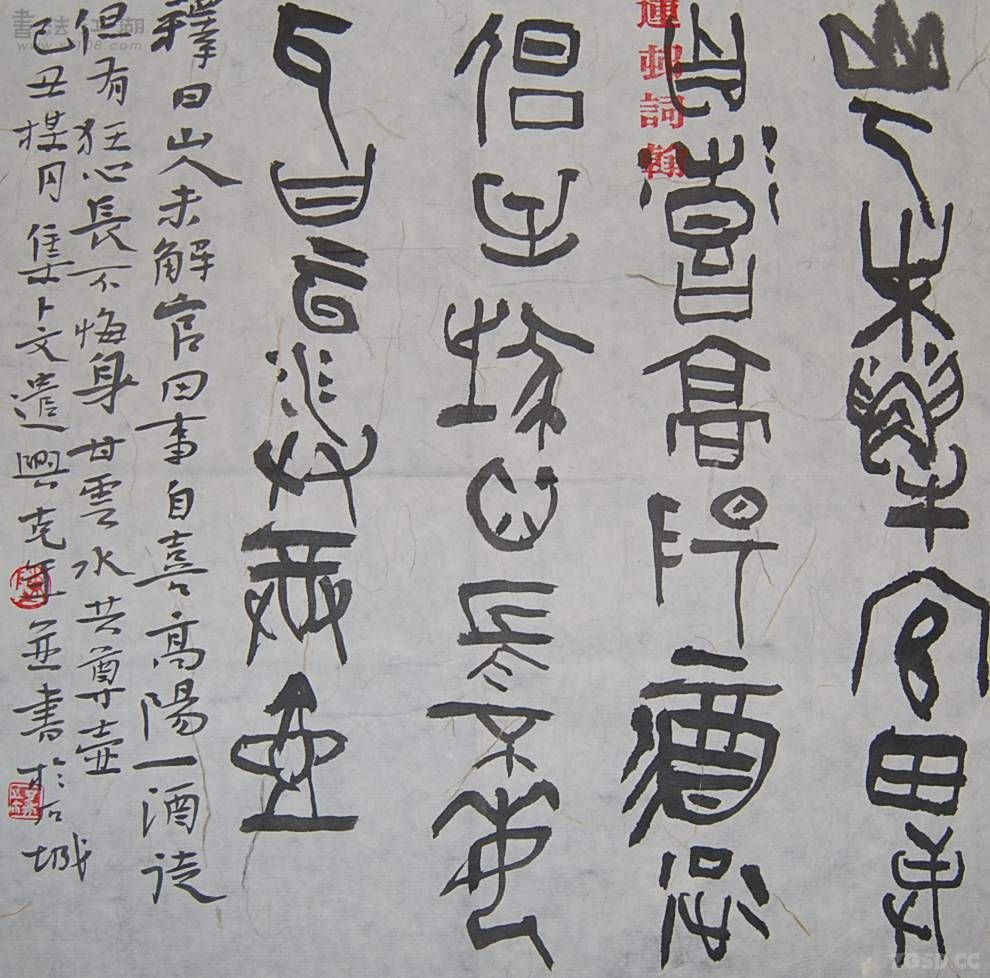 山人未解官田事
自喜高陽一酒徒
但有狂心長不悔
身甘雲水共尊壺
釋曰山人未解官田事自喜高陽一酒徒
但有狂心長不悔身甘雲水共尊壺
己丑楳月集卜文遣興克年並書於石城
邨詞翰
書法江湖